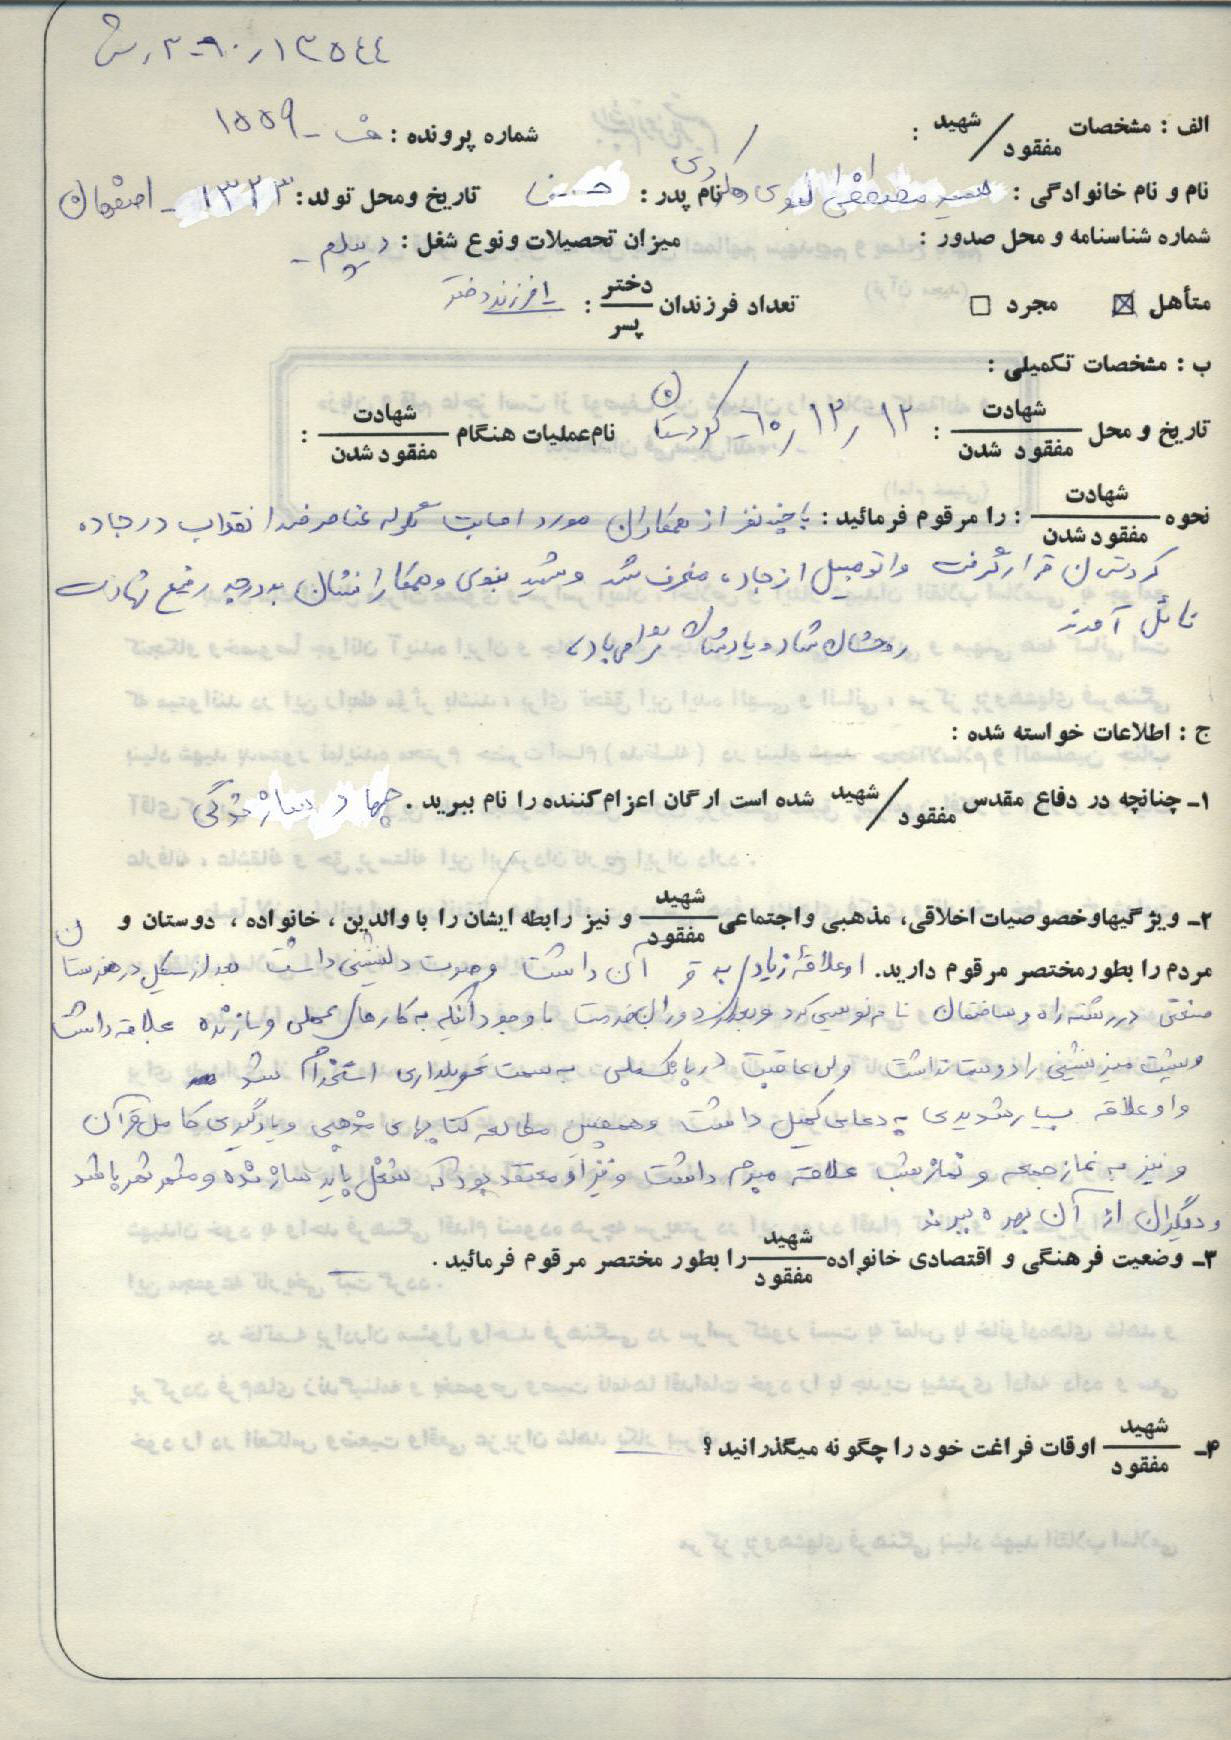 ۱۳۵۴۴
الف : مشخصات شهید / مفقود : شماره پرونده : ف - ۱۵۵۹
نام و نام خانوادگی : سید مصطفی نبوی نام پدر : حسن تاریخ ومحل تولد : ۱۳۲۳ - اصفهان
شماره شناسنامه و محل صدور : میزان تحصیلات ونوع شغل : دیپلم -
متأهل ☒ مجرد □ تعداد فرزندان دختر / پسر : ۱ فرزند دختر
ب : مشخصات تکمیلی :
تاریخ و محل شهادت / مفقود شدن : ۱۲ / ۱۲ / ۶۰ - کردستان نام عملیات هنگام شهادت / مفقود شدن :
نحوه شهادت / مفقود شدن : را مرقوم فرمائید : با چند نفر از همکاران مورد اصابت گلوله عناصر ضد انقلاب در جاده
کردستان قرار گرفت واتومبیل از جاده منحرف شد و شهید نبوی و همکارانشان به درجه رفیع شهادت
نائل آمدند
روحشان شاد و یادشان گرامی باد
ج : اطلاعات خواسته شده :
۱- چنانچه در دفاع مقدس شهید / مفقود شده است ارگان اعزام کننده را نام ببرید . جهاد سازندگی
۲- ویژگیهاوخصوصیات اخلاقی، مذهبی واجتماعی شهید / مفقود و نیز رابطه ایشان را با والدین ، خانواده ، دوستان و
مردم را بطورمختصر مرقوم دارید. او علاقه زیاد به قرآن داشت و صوت دلنشینی داشت بعد از سیکل در هنرستان
صنعتی در رشته راه و ساختمان نام نویسی کرد و بعد از دوران خدمت با وجود آنکه به کارهای عملی و سازنده علاقه داشت
و پشت میز نشینی را دوست نداشت ولی عاقبت در بانک ملی به سمت تحویلداری استخدام شد
و او علاقه بسیار شدیدی به دعای کمیل داشت و همچنین مطالعه کتابهای مذهبی و یادگیری کامل قرآن
و نیز به نماز جمعه و نماز شب علاقه مبرم داشت و نیز او معتقد بود که شغل باید سازنده و مثمر ثمر باشد
و دیگران از آن بهره ببرند
۳- وضعیت فرهنگی و اقتصادی خانواده شهید / مفقود را بطور مختصر مرقوم فرمائید .
۴- شهید / مفقود اوقات فراغت خود را چگونه میگذرانید ؟